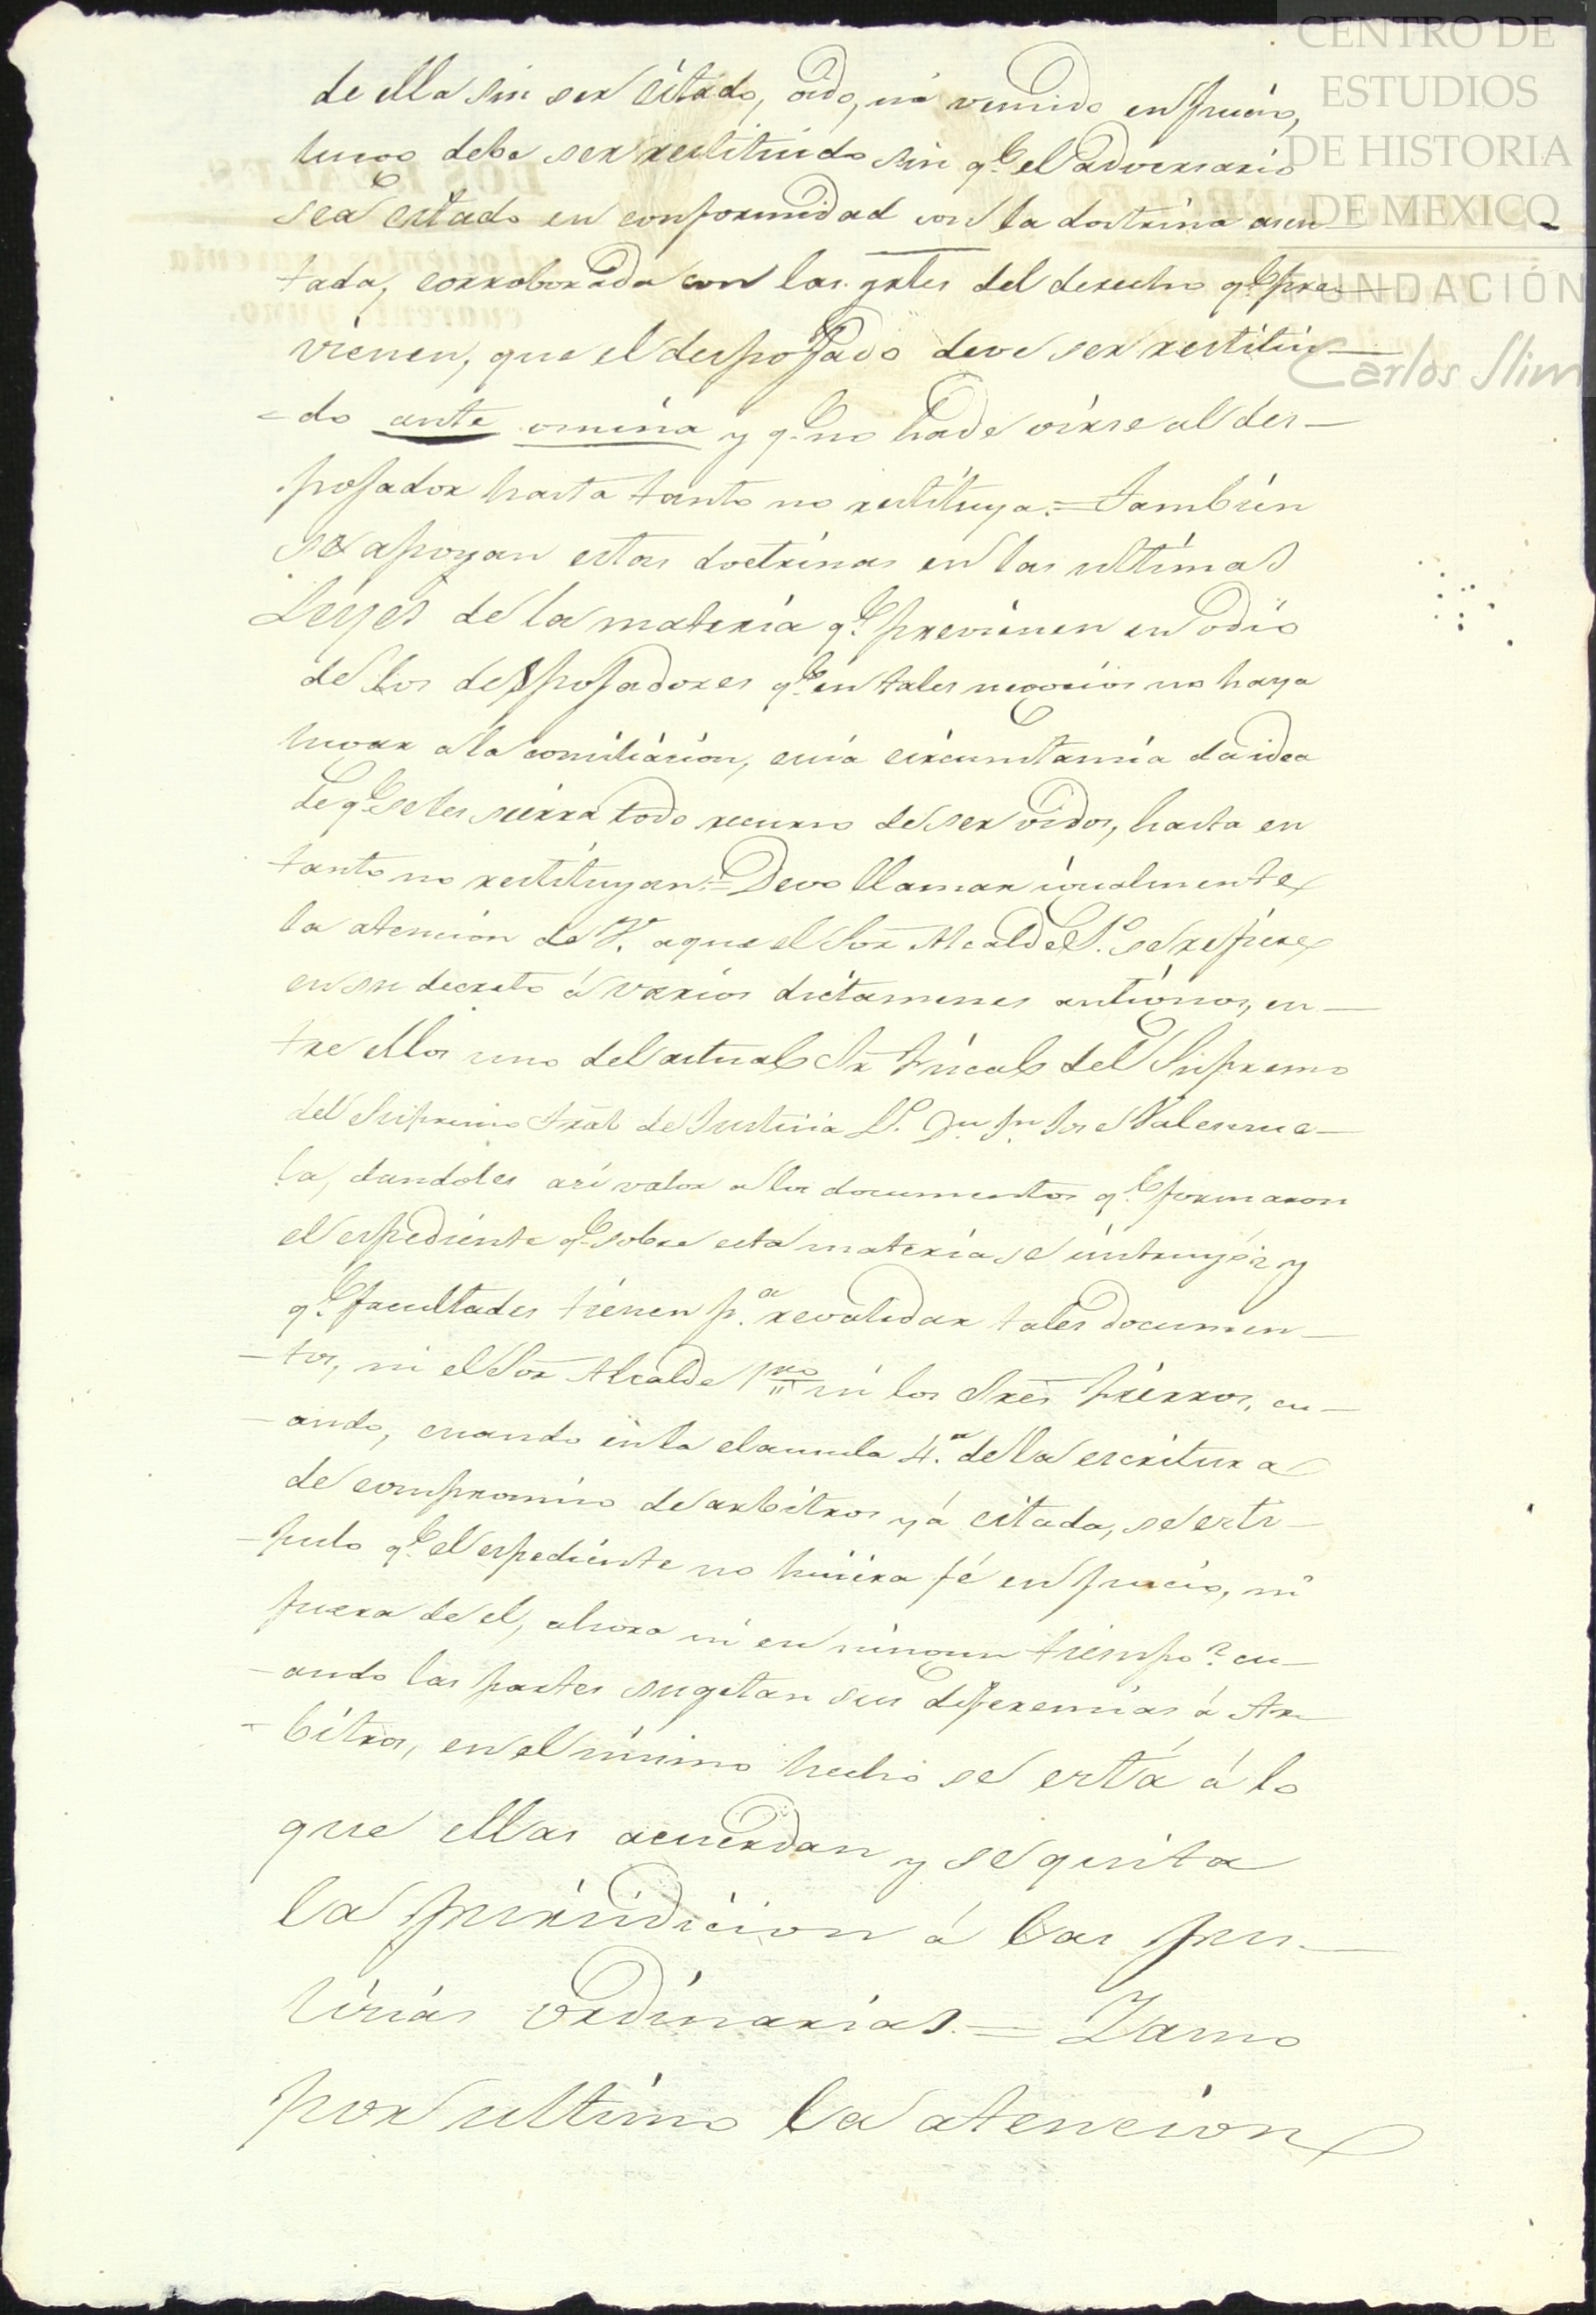 CENTRO DE
ESTUDIOS
DE HISTORIA
DE MEXICO
FUNDACIÓN
Carlos Slim
de ella sin ser citado, oido, ni vencido en juicio,
luego debe ser restituido sin q.e el adversario
sea citado en conformidad con la doctrina asen-
tada, corroborada con las grales del derecho q.e pre-
vienen, que el despojado deve ser restitui-
-do ante omnia y q.e no hade oirse al des-
pojador hasta tanto no restituya.= Tambien
se apoyan estas doctrinas en las ultimas
Leyes de la materia q.e previenen en odio
de los despojadores q.e en tales negocios no haya
lugar a la conciliacion, cuia circunstancia da idea
de q.e se les sierra todo recurso de ser oidos, hasta en
tanto no restituyan.= Devo llamar igualmente
la atencion de V. aque el Sor Alcalde 1.o se refiere
en su decreto á varios dictamenes antiguos, en-
tre ellos uno del actual Sr Fiscal del Supremo
del Supremo Tral de Justicia L. Dn Jn José Valenzue-
la, dandoles asi valor a los documentos q.e formaron
el espediente q.e sobre esta materia se instruyó; y
q.e facultades tienen p.a revalidar tales documen-
-tos, ni el Sor Alcalde 1ro ni los Sres Fierros, cu-
-ando, cuando en la clausula 4.a de la escritura
de compromiso de arbitros yá citada, se esti-
-pulo q.e el espediente no hiciera fé en juicio, ni
fuera de el, ahora ni en ningun tiempo? cu-
-ando las partes sugetan sus diferencias á Ar-
-bitros, en el mismo hecho se está á lo
que ellas acuerdan y se quita
la jurisdicion á las jus-
ticias ordinarias.= Llamo
por ultimo la atencion